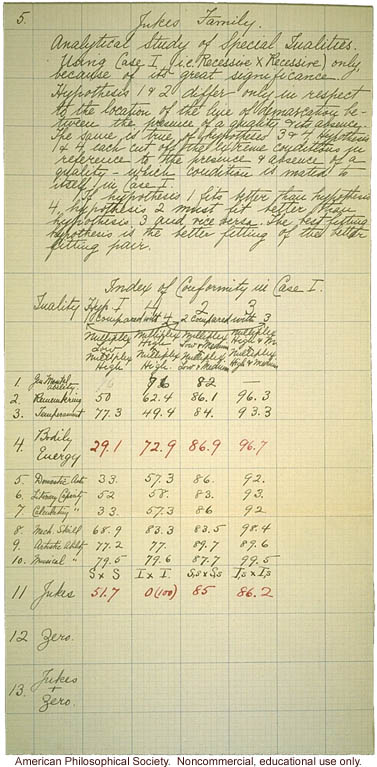 5.
Jukes Family.
Analytical Study of Special Qualities.
Using Case I (i.e. Recessive × Recessive) only,
because of its great significance.
Hypothesis 1 & 2 differ only in respect
to the location of the line of demarcation be-
tween the presence of a quality & its absence.
The same is true of hypotheses 3 & 4. Hypothesis
1 & 4 each cut off the extreme conditions in
reference to the presence & absence of a
quality - which condition is mated to
itself in Case I.
If hypothesis 1 fits better than hypothesis
4, hypothesis 2 must fit better than
hypothesis 3 and vice versa. The best fitting
hypothesis is the better fitting of the better
fitting pair.
Index of Conformity in Case I.
Quality Hyp I 4 2 3
(Compared with 4 2 compared with 3
Multiplex Multiplex Multiplex Multiplex
Low High Low & Medium High &
Multiplex Multiplex Multiplex Multiplex
High High Low & Medium High & Medium
1. Gen Mental Ability 76 82 —
2. Remembering 50 62.4 86.1 96.3
3. Temperament 77.3 49.4 84. 93.3
4. Bodily Energy 29.1 72.9 86.9 96.7
5. Domestic Arts 33. 57.3 86. 92.
6. Literary Capacity 52 58. 83. 93.
7. Calculating " 33. 57.3 86 92
8. Mech. Skill 68.9 83.3 83.5 98.4
9. Artistic Ability 77.2 77. 89.7 89.6
10. Musical " 79.5 79.6 87.7 99.5
S × S I × I S,s × S,s I,s × I,s
11 Jukes 51.7 0(100) 85 86.2
12 Zero.
13. Jukes
+
Zero.
American Philosophical Society. Noncommercial, educational use only.